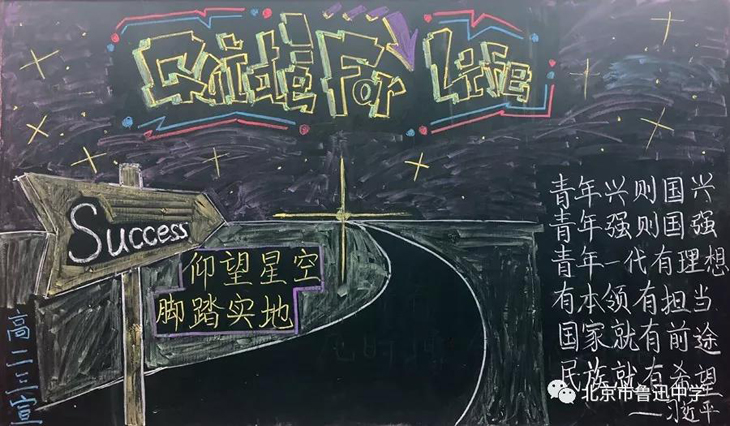 Guide For Life
Success
仰望星空
脚踏实地
青年兴则国兴
青年强则国强
青年一代有理想
有本领有担当
国家就有前途
民族就有希望
——习近平
高二三宣
北京市鲁迅中学